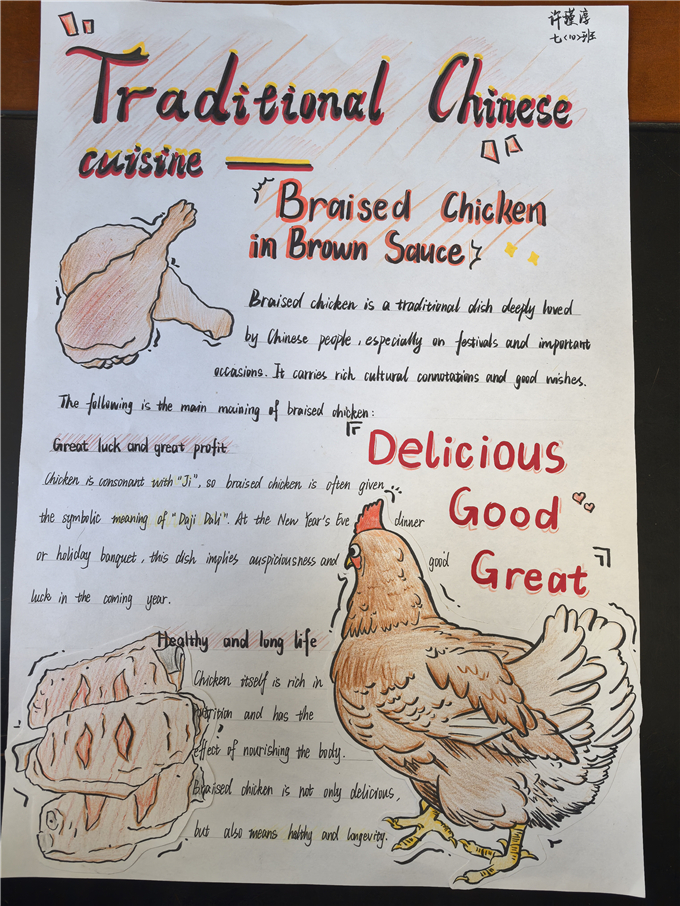 许瑾淳
七(10)班
Traditional Chinese
cuisine
Braised Chicken
in Brown Sauce
Braised chicken is a traditional dish deeply loved
by Chinese people, especially on festivals and important
occasions. It carries rich cultural connotations and good wishes.
The following is the main maining of braised chicken:
Great luck and great profit
Chicken is consonant with "Ji", so braised chicken is often given
the symbolic meaning of "Daji Dali". At the New Year's Eve dinner
or holiday banquet, this dish implies auspiciousness and good
luck in the coming year.
『Delicious
Good
Great』
Healthy and long life
Chicken itself is rich in
nutrition and has the
effect of nourishing the body.
Braised chicken is not only delicious,
but also means halthy and longevity.